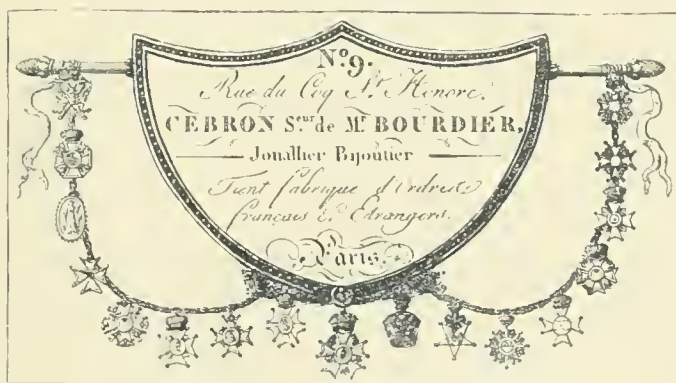 N.º 9.
Rue du Coq S.t Honoré.
CEBRON S.eur de M.r BOURDIER,
Jouallier Bijoutier
Tient fabrique d'Ordres
français & Etrangers.
Paris.